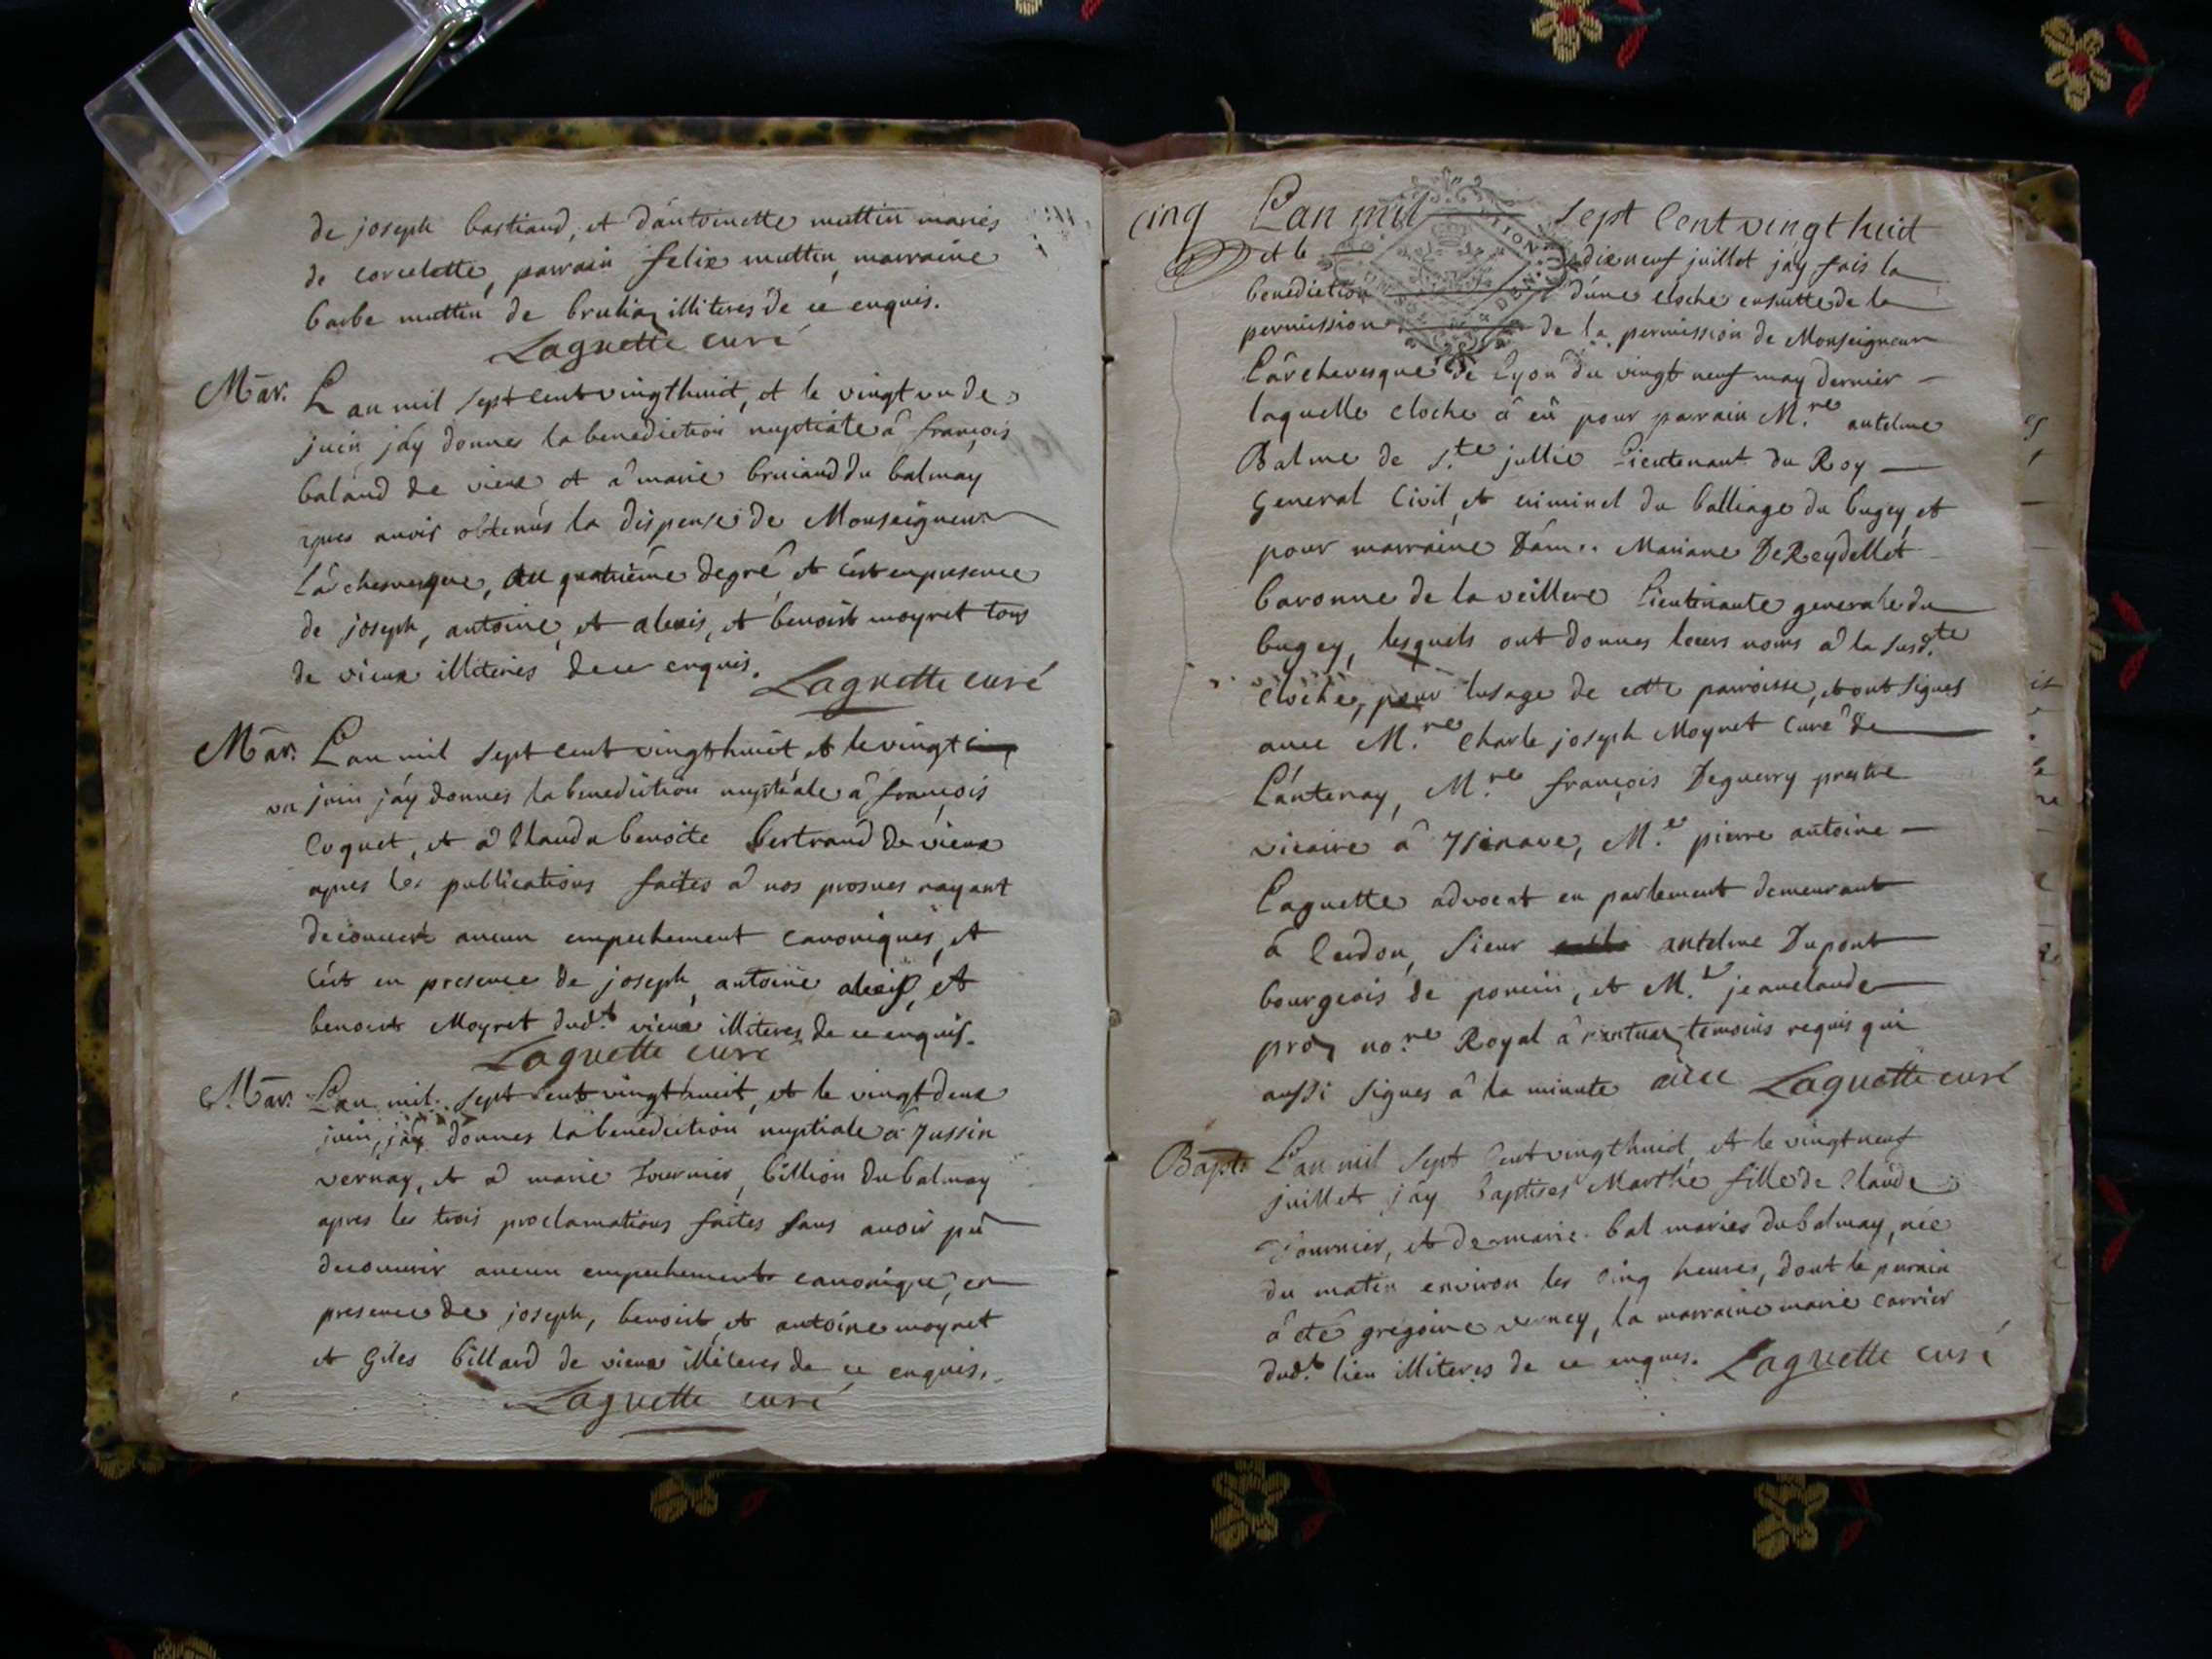 de joseph bastiand, et d'antoinette muttin mariés
de corcelette, parrain felix muttin, marraine
barbe muttin de brulia illiteres de ce enquis.
Laguette curé
Mar. L'an mil sept cent vingthuit, et le vingt un de
juin j'ay donnes la benediction nuptiale â françois
baland de vieux et â marie bruiand du balmay
apres auoir obtenus la dispense de Monseigneur
L'archevesque, du quatrième degré et c'est en presence
de joseph, antoine et alexis, et benoist moyret tous
de vieux illiteres de ce enquis. Laguette curé
Mar. L'an mil sept cent vingthuit et le vingt
un juin j'ay donnes la benediction nuptiale â françois
Coquet, et â Clauda benoite bertrand de vieux
apres les publications faites â nos prosnes n'ayant
decouvert aucun empechement canoniques, et
c'est en presence de joseph, antoine alexis, et
benoist Moyret dud.t vieux illiteres de ce enquis.
Laguette curé
Mar. L'an mil sept cent vingthuit, et le vingt deux
juin, j'ay donnes la benediction nuptiale â
vernay, et â marie fournier, billion du balmay
apres les trois proclamations faites sans avoir pû
decouvrir aucun empechement canonique, en
presence de joseph, benoist et antoine moyret
et Giles billard de vieux illiteres de ce enquis.
Laguette curé
cinq L'an mil sept Cent vingt huit
et le dixneuf juillet j'ay fais la
benediction d'une cloche ensuitte de la
permission de la permission de Monseigneur
L'archevesque de Lyon du vingt neuf may dernier
laquelle cloche â eû pour parrain M.re antelme
Balme de S.te jullie Lieutenant du Roy
General Civil, et criminel du balliage du bugey, et
pour marraine Dam.. Mariane DeReydellet
baronne de la veillere Lieutenante generale du
bugey, lesquels ont donnes leurs noms â la susd.te
cloche, pour l'usage de cette parroisse, et ont signes
avec M.re Charle joseph Moyret Curé de
Lantenay, M.re françois Deguerry prestre
vicaire â Isinave, M.e pierre antoine
Laguette advocat en parlement demeurant
â Cerdon, Sieur antelme Dupont
bourgeois de poncin, et M.e jeanclaude
no.re Royal â nantua temoins requis qui
aussi signes â la minute avec Laguette curé
Bapt. L'an mil Sept Cent vingthuit, et le vingt neuf
juillet j'ay baptises Marthe fille de Claude
fournier, et de marie bal maries du balmay, née
du matin environ les cinq heures, dont le parrain
â eté gregoire verney, la marraine marie carrier
dud.t lieu illiteres de ce enquis. Laguette curé